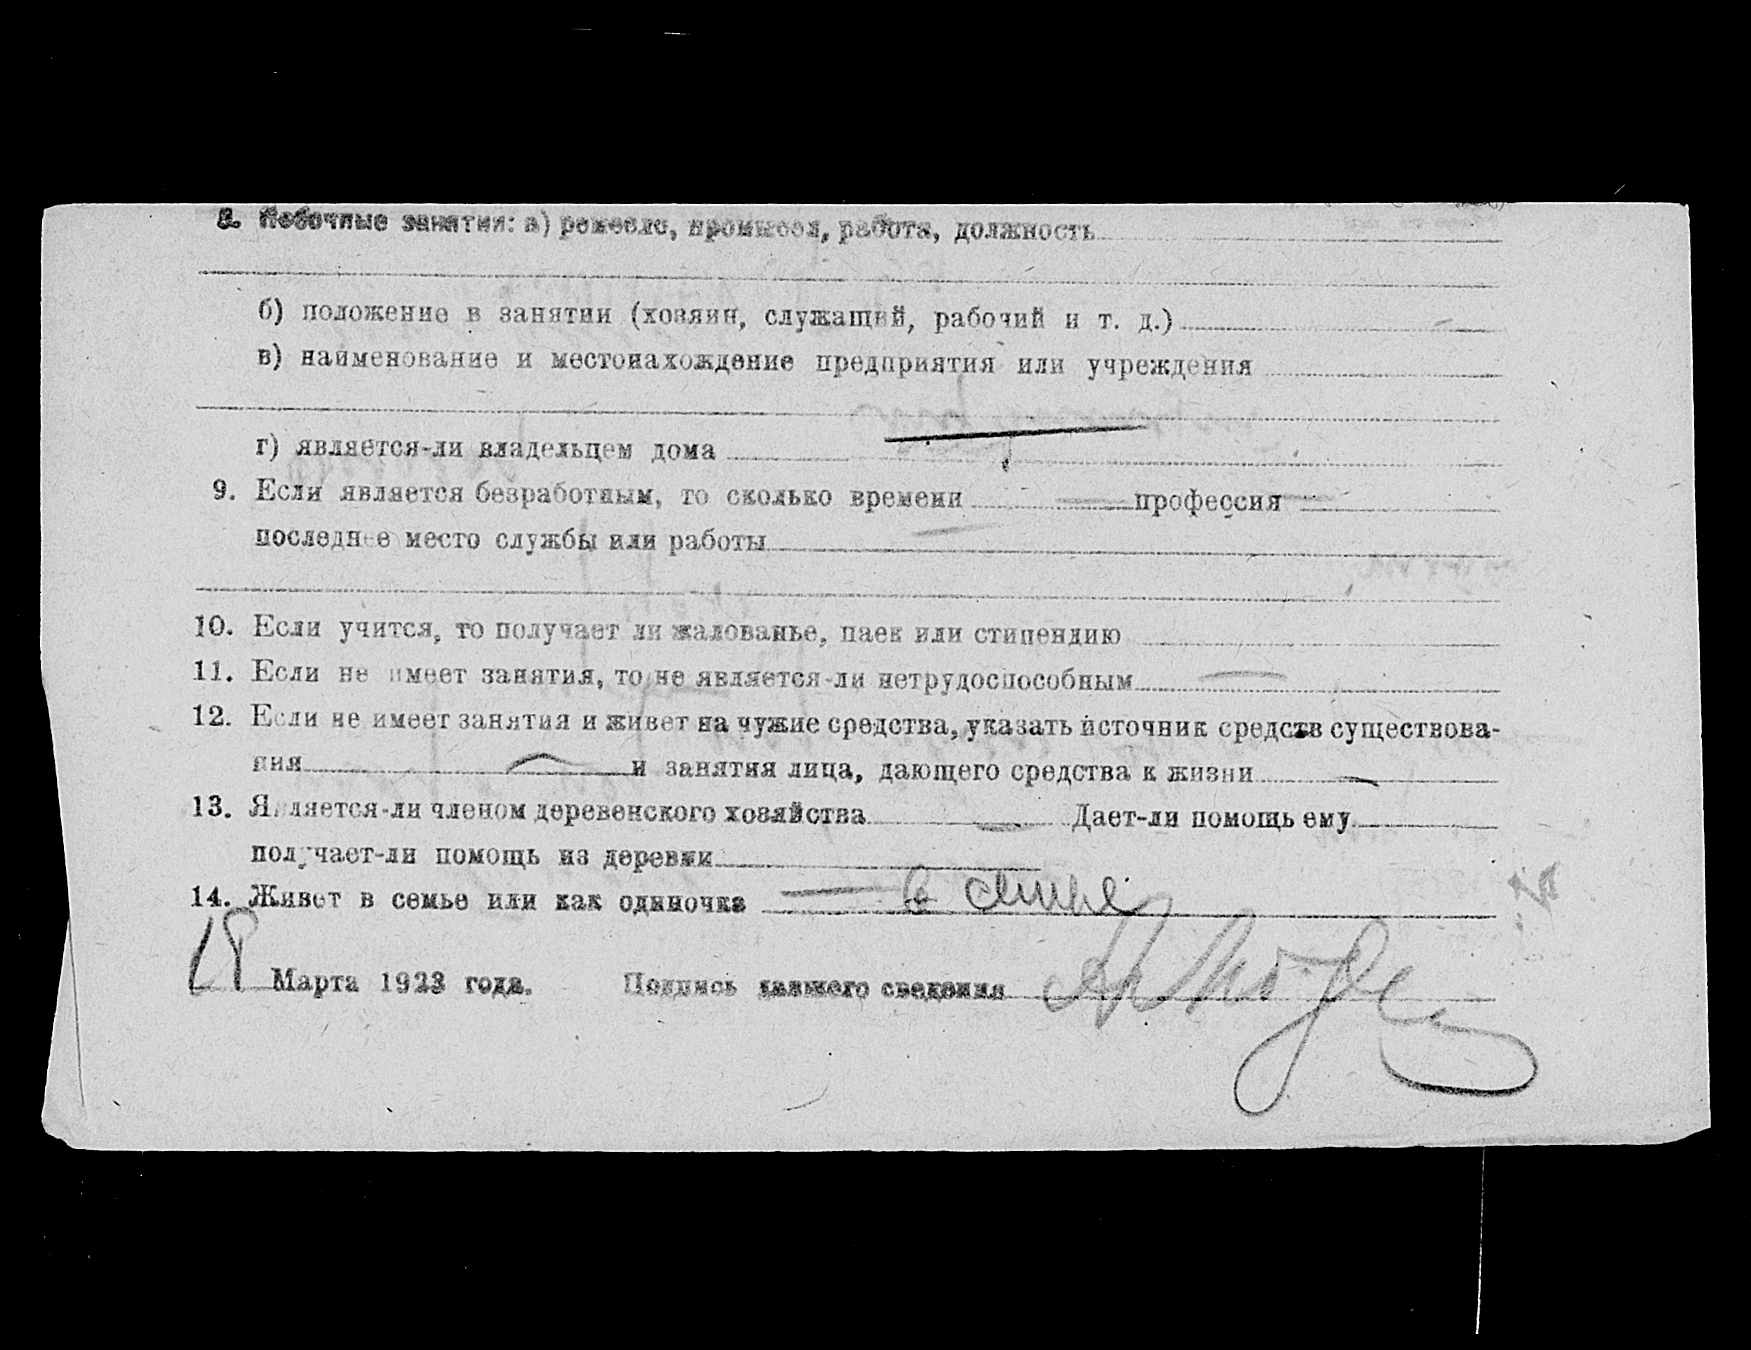 8. Побочные занятия: а) ремесло, промысел, работа, должность
б) положение в занятии (хозяин, служащий, рабочий и т. д.)
в) наименование и местонахождение предприятия или учреждения
г) является-ли владельцем дома
9. Если является безработным, то сколько времени — профессия —
последнее место службы или работы —
10. Если учится, то получает ли жалованье, паек или стипендию
11. Если не имеет занятия, то не является-ли нетрудоспособным —
12. Если не имеет занятия и живет на чужие средства, указать источник средств существова-
ния — и занятия лица, дающего средства к жизни —
13. Является-ли членом деревенского хозяйства — Дает-ли помощь ему
получает-ли помощь из деревни
14. Живет в семье или как одиночка — в семье
18 Марта 1923 года. Подпись давшего сведения